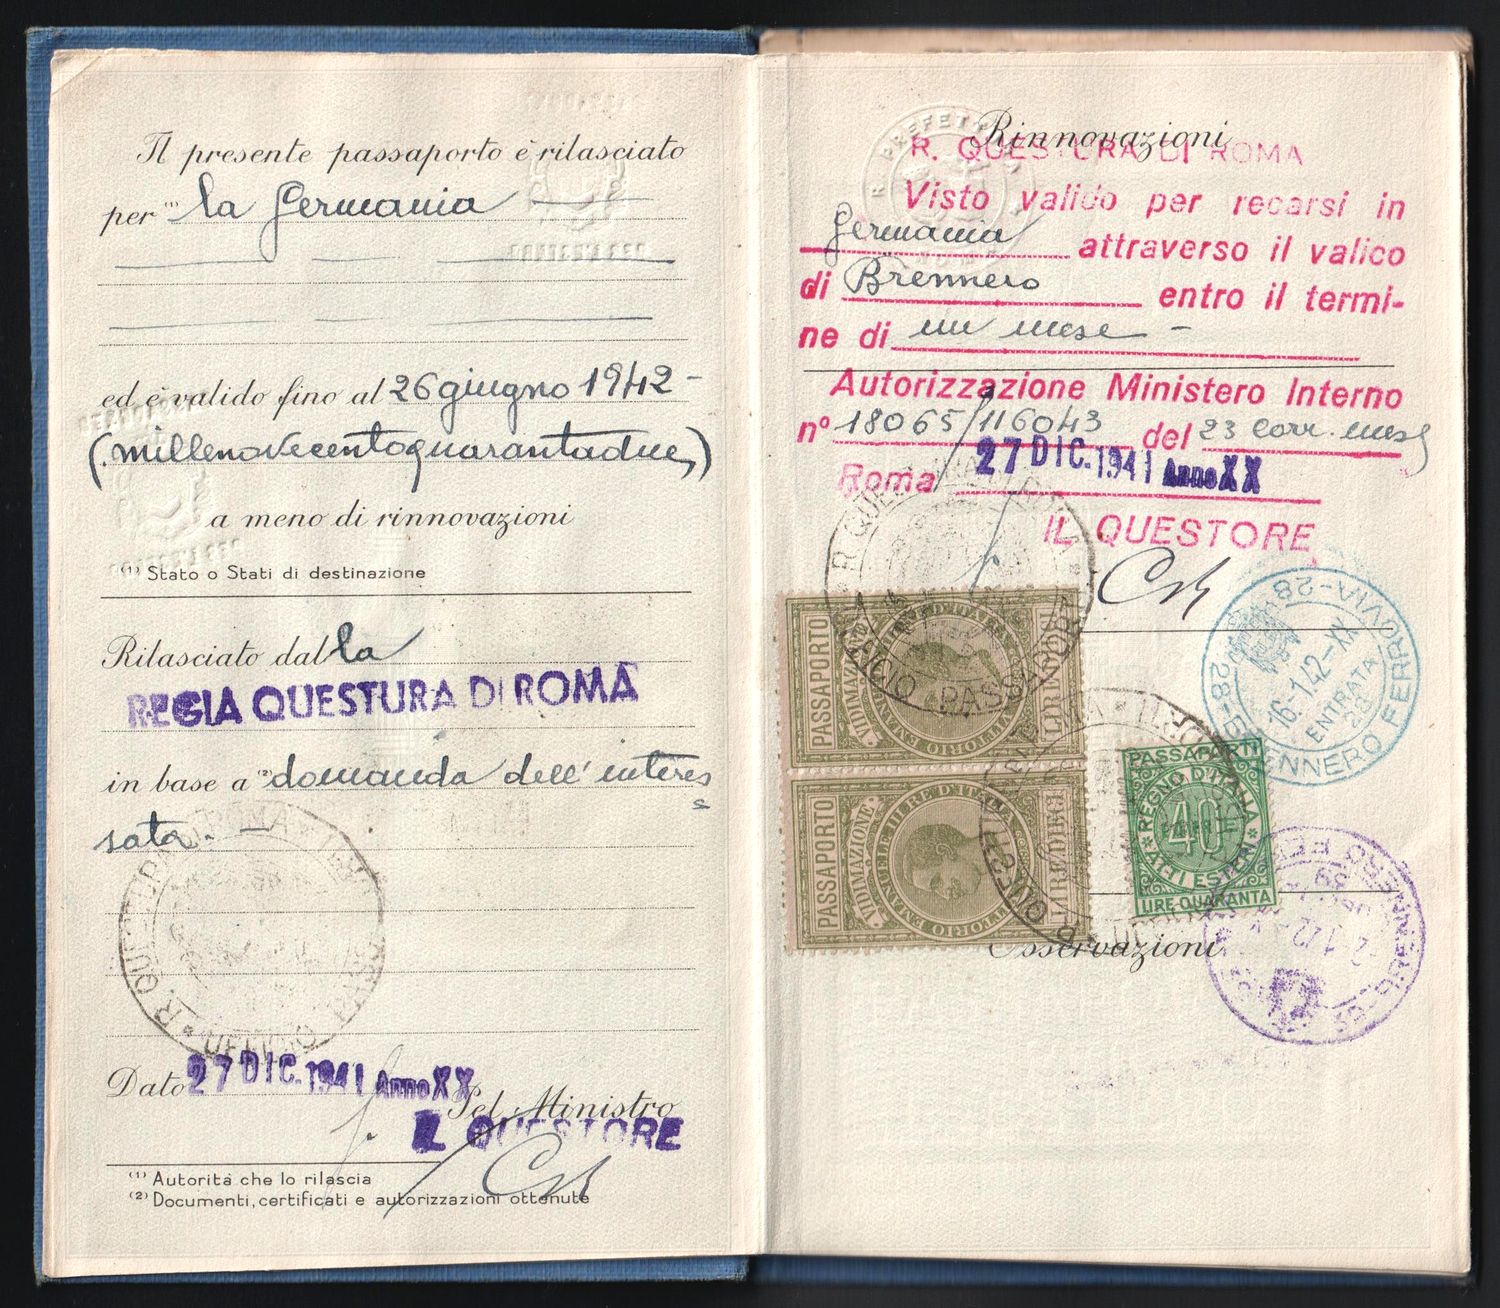 Il presente passaporto è rilasciato
per (1) la Germania
ed è valido fino al 26 giugno 1942 -
(millenovecentoquarantadue)
a meno di rinnovazioni
(1) Stato o Stati di destinazione
Rilasciato dal la
REGIA QUESTURA DI ROMA
in base a (2) domanda dell'interes
sata. -
Dato 27 DIC. 1941 Anno XX
Pel Ministro
IL QUESTORE
(1) Autorità che lo rilascia
(2) Documenti, certificati e autorizzazioni ottenute
Rinnovazioni
R. QUESTURA DI ROMA
Visto valido per recarsi in
Germania attraverso il valico
di Brennero entro il termi-
ne di un mese -
Autorizzazione Ministero Interno
n° 18065/116043 del 23 corr. mese
Roma 27 DIC. 1941 Anno XX
IL QUESTORE
PASSAPORTO
VIDIMAZIONE
VITTORIO EMANUELE III RE D'ITALIA
LIRE DIECI
PASSAPORTO
VIDIMAZIONE
VITTORIO EMANUELE III RE D'ITALIA
LIRE DIECI
UFFICIO PASSAPORTI
28-BRENNERO FERROVIA-28
16.1.42-XX
ENTRATA
28
PASSAPORTI
REGNO D'ITALIA
40
ATTI ESTERI
LIRE QUARANTA
Osservazioni